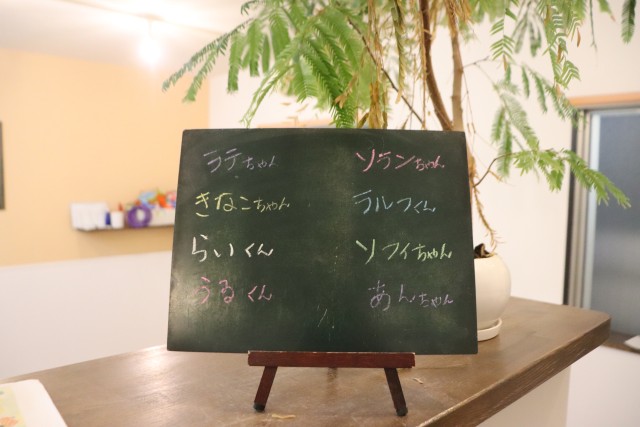 ラテちゃん
きなこちゃん
らいくん
うるくん
ソランちゃん
ラルフくん
ソフィちゃん
あんちゃん